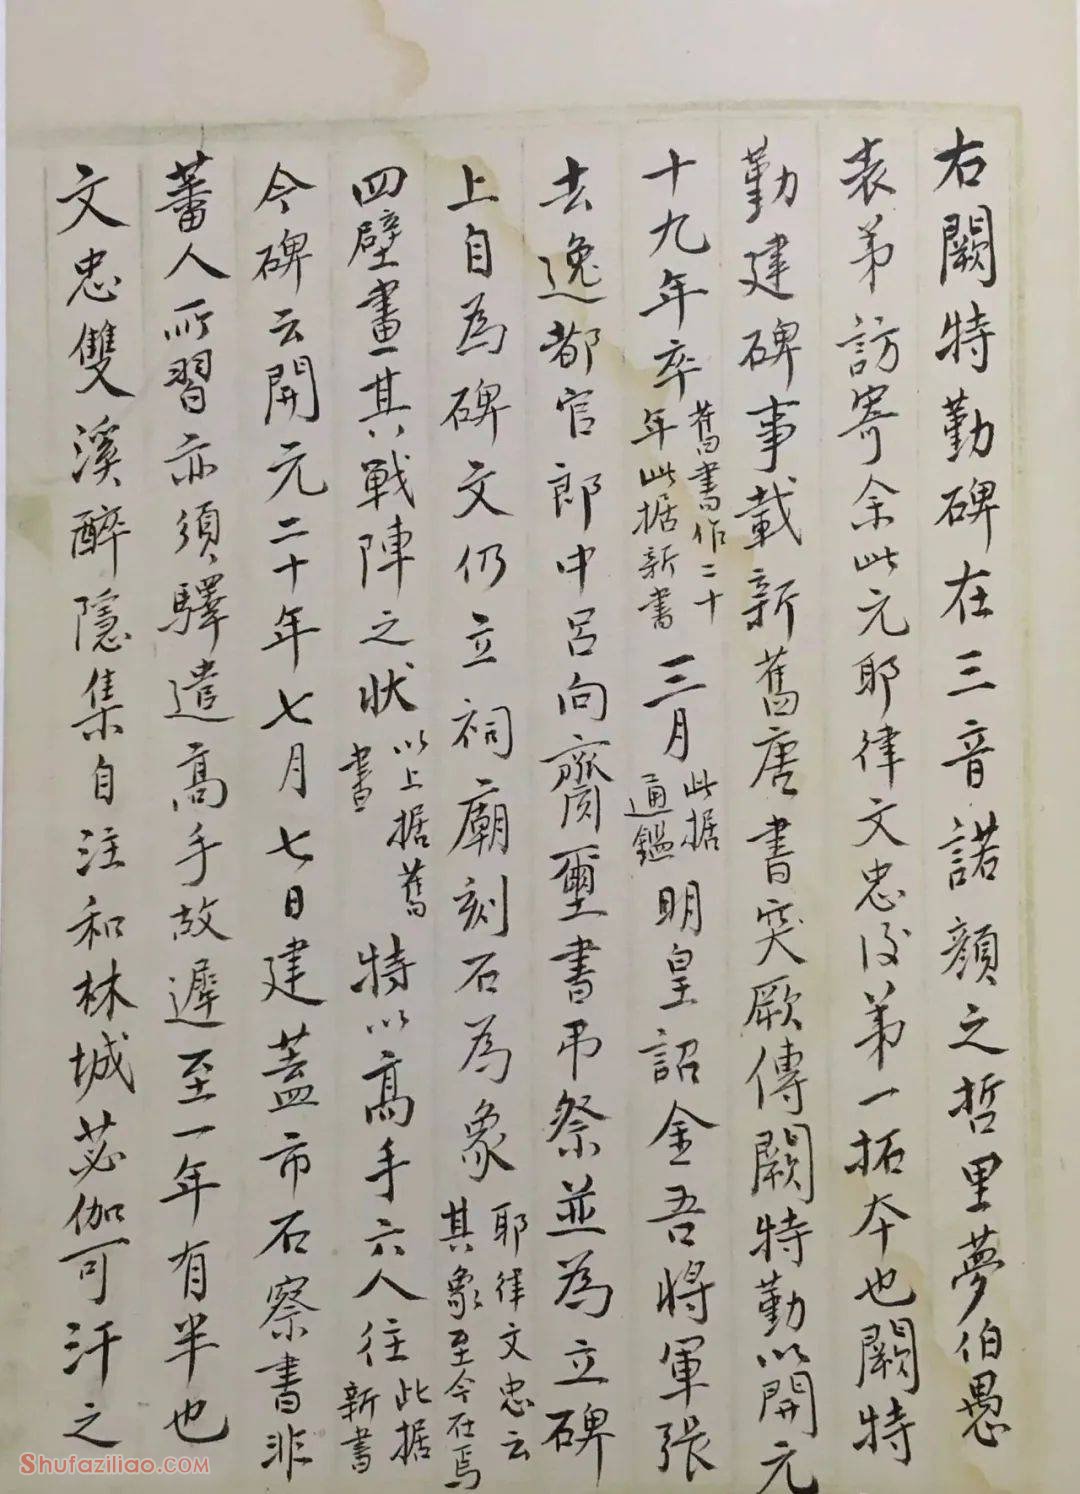 右闕特勤碑在三音諾顏之哲里夢伯愚
表弟訪寄余此元耶律文忠後第一拓本也闕特
勤建碑事載新舊唐書突厥傳闕特勤以開元
十九年卒舊書作二十年此据新書三月此据通鑑明皇詔金吾將軍張
去逸都官郎中呂向齎璽書弔祭並為立碑
上自為碑文仍立祠廟刻石為象耶律文忠云其象至今在焉
四壁畫其戰陣之狀以上据舊書特以高手六人往此据新書
今碑云開元二十年七月七日建蓋市石察書非
蕃人所習亦須驛遣高手故遲至一年有半也
文忠雙溪醉隱集自注和林城苾伽可汗之
Shufaziliao.COM